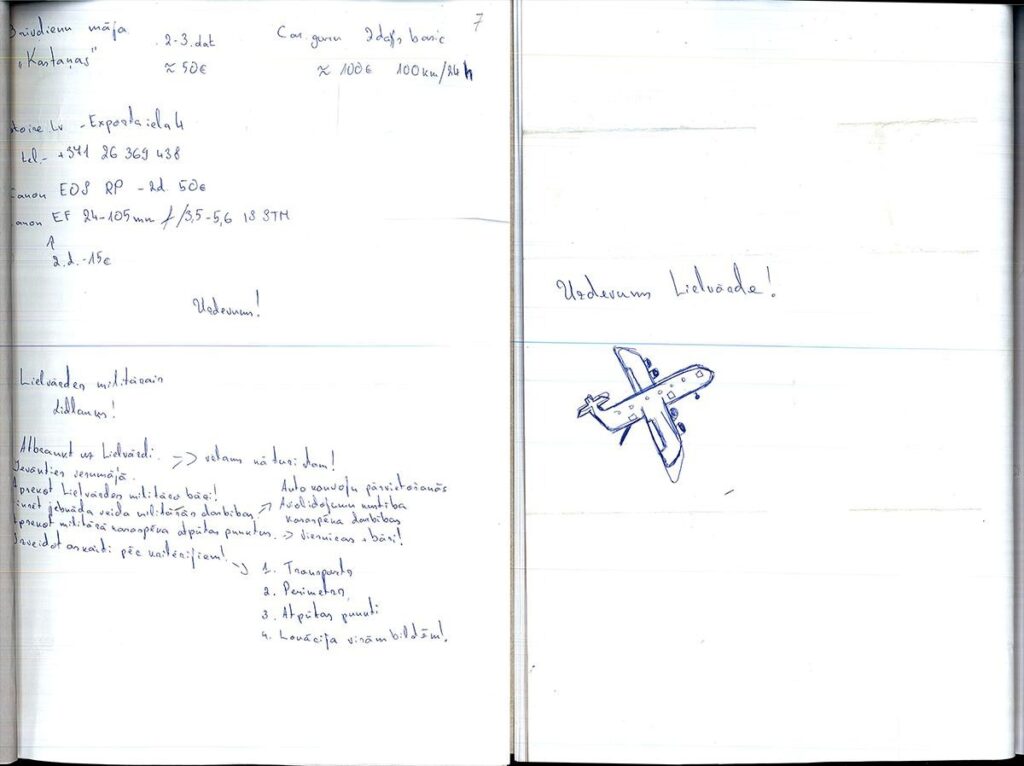 7
Brīvdienu māja 2-3.dat Car.guru 2days basic
"Kastaņas" ≈ 50€ ≈ 100€ 100km/24h
store Lv - Eksporta iela 4
tel.- +371 26 369 438
Canon EOS RP - 2d. 50€
Canon EF 24-105mm f/3,5-5,6 IS STM
↑
2.d.-15€
Uzdevums!
Lielvārdes militārais
lidlauks!
Atbraukt uz Lielvārdi. =>> vēlams nā turi dam!
Ievākties
Apsekot Lielvārdes militāro bāzi! Auto konvoju pārvietošanās
jebkāda veida militārās darbības -> Avio lidojumu kustība
karaspēka darbības
Apsekot militārā karaspēka atpūtas punktus. -> + bāri!
Izveidot atskaiti pēc kritērijiem! ->
1. Transports
2. Perimetrs
3. Atpūtas punkti
4. Lokācija visām bildēm!
Uzdevums Lielvārde!